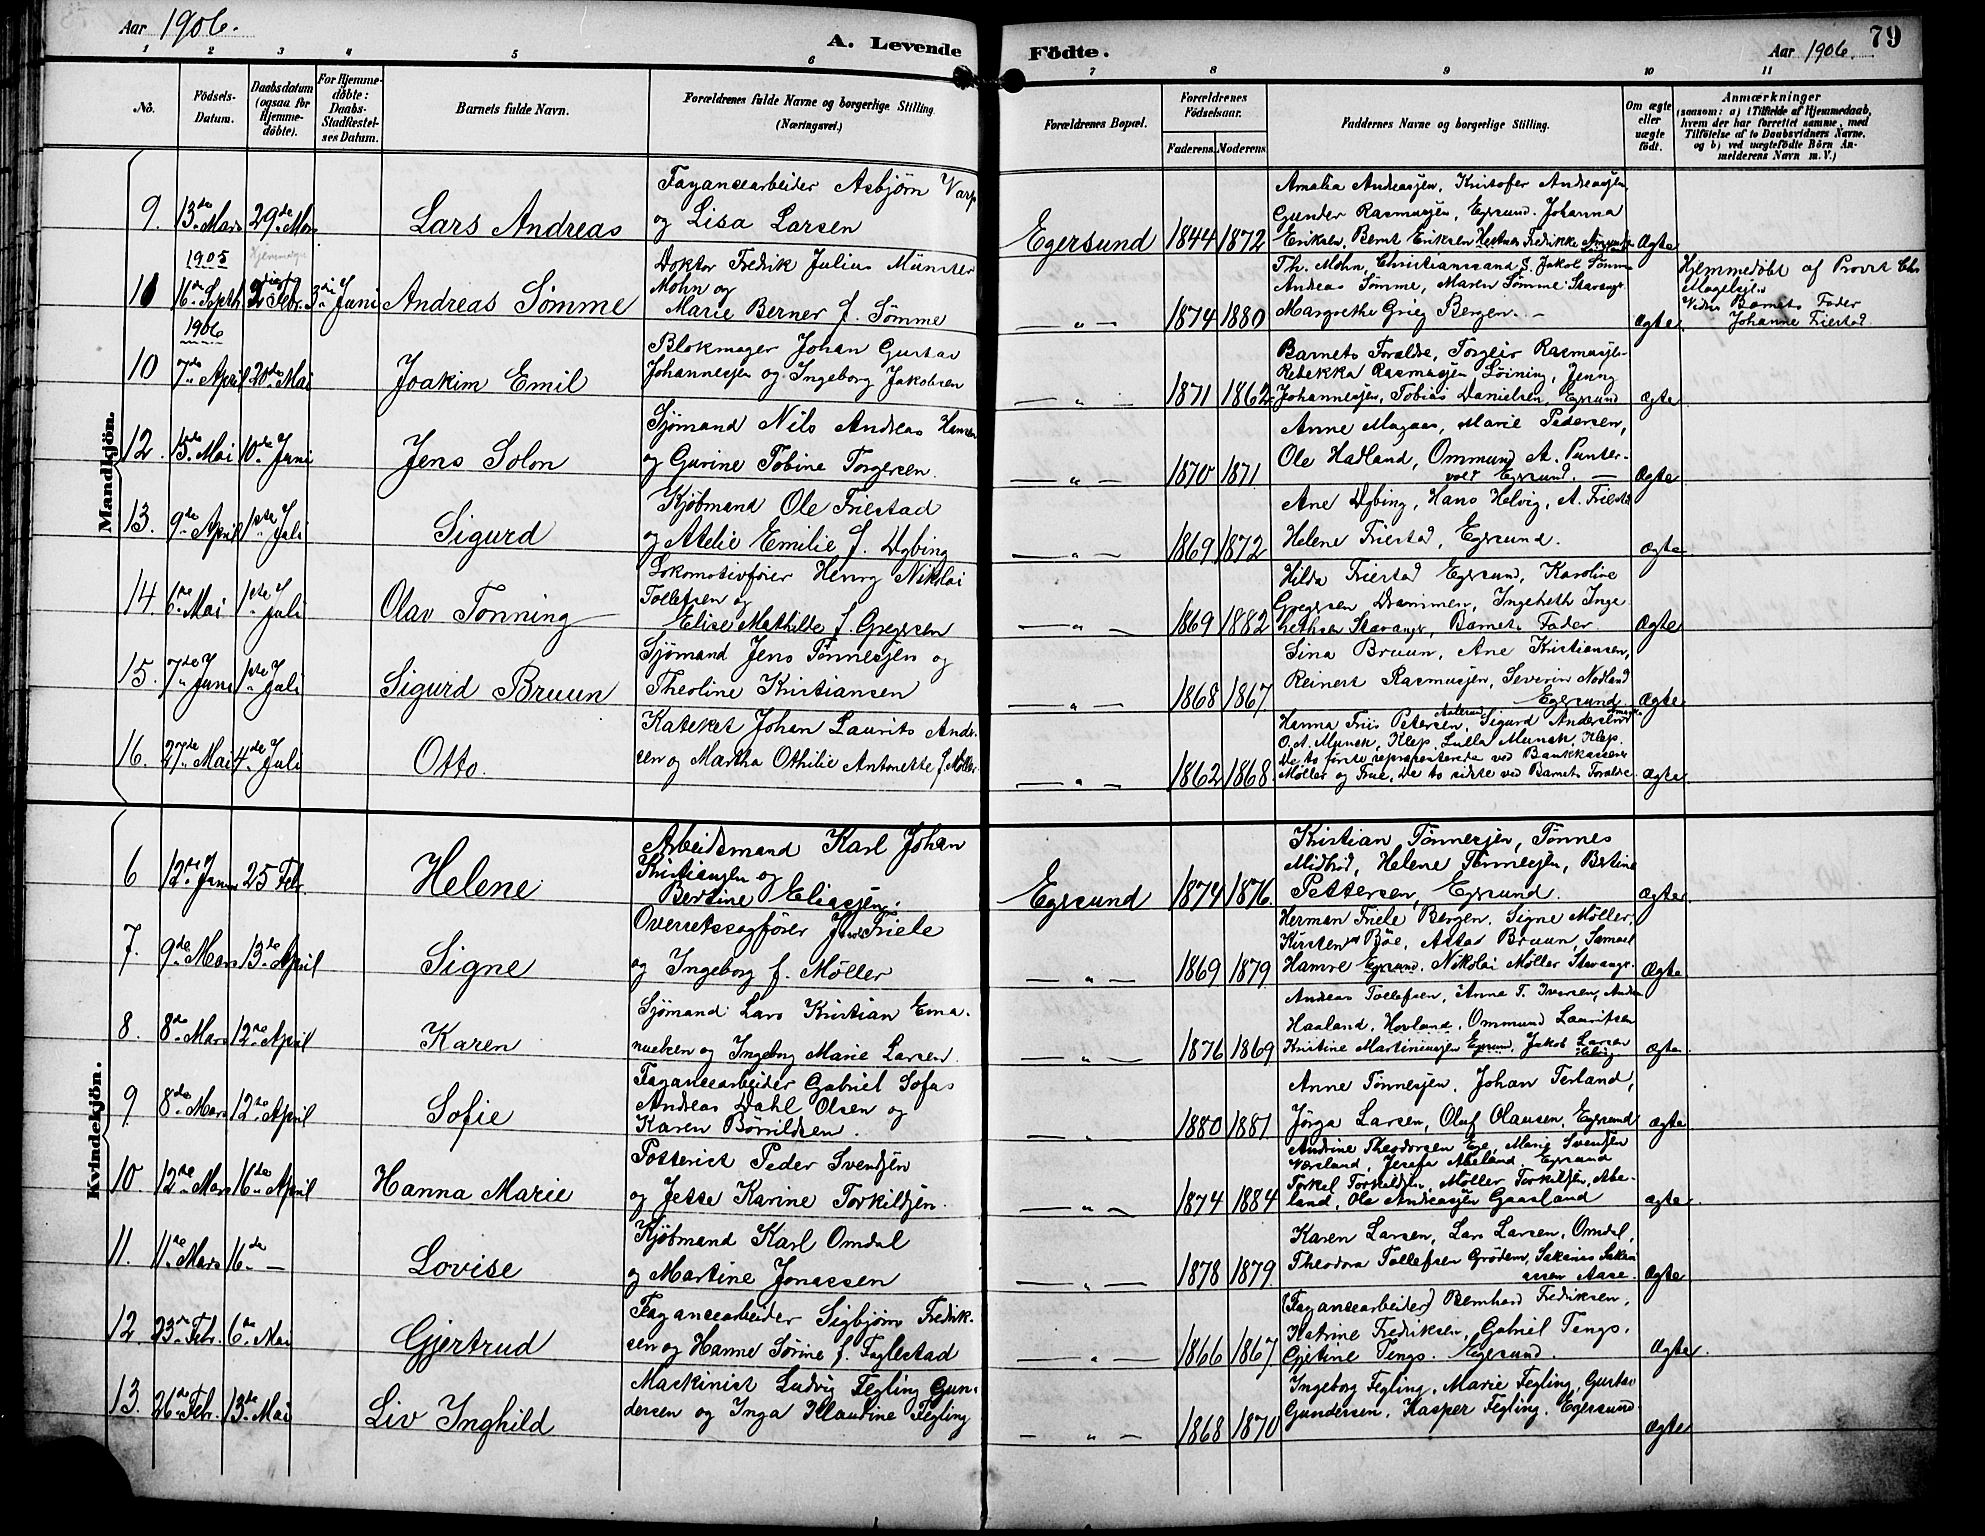 Aar 1906.
A. Levende Födte.
79
Aar 1906.
1 2 3 4 5 6 7 8 9 10 11
No.
Födsels-Datum.
Daabsdatum (ogsaa for Hjemme-döbte).
For Hjemme-döbte: Daabs-Stadfæstel-ses Datum.
Barnets fulde Navn.
Forældrenes fulde Navne og borgerlige Stilling (Næringsvei.)
Forældrenes Bopæl.
Forældrenes Födselsaar.
Faderens. Moderens.
Faddernes Navne og borgerlige Stilling.
Om ægte eller uægte födt.
Anmærkninger
(saasom: a) i Tilfælde af Hjemmedaab, hvem der har forrettet samme, med Tilföielse af to Daabsvidners Navne, og b) ved uægtefödte Börn Anmelderens Navn m. V.)
Mandkjön.
9. 13de Mars 29de Mars Lars Andreas
Fayancearbeider Asbjørn Varp
og Lisa Larsen
Egersund 1844 1872
Amalia Andreassen, Kristofer Andreassen,
Gunder Rasmussen, Egrsund. Johanna
Eriksen, Bernt Eriksen Fredrikke
Ægte
1905
11 16de Septb. Febr. 3die Juni Andreas Sømme
Doktor Fredrik Julius Münster
Mohn og
Marie Berner f. Sømme
— " — 1874 1880
Th. Mohn, Christianssand S. Jakob Sømme
Andreas Sømme, Maren Sømme Stavangr
Margrethe Grieg Bergen. —
Ægte
Hjemmedøbt af Provst Chr.
Vidner Barnets Fader
Johanne Friestad
1906
10 7de April 20de Mai Joakim Emil
Blokmager Johan Gustav
Johannessen og Ingeborg Jakobsen
— " — 1871 1862
Barnets Foreldre, Torgeir Rasmussen
Rebekka Rasmussen Løining, Jenny
Johannessen, Tobias Danielsen, Egrsund
Ægte
12. 15de Mai 10de Juni Jens Solon
Sjømand Nils Andreas Hansen
og Gurine Tobine Torgersen.
— " — 1870 1871
Anne Magaas, Marie Pedersen,
Ole Hadland, Ommund A. Punter-
vold Egrsund. —
Ægte
13. 9de April 1ste Juli Sigurd
Kjøbmand Ole Friestad
og Atelie Emilie f. Dybing
— " — 1869 1872
Ane Dybing, Hans Helvig, A. Friestad
Helene Friestad, Egrsund.
Ægte
14 6te Mai 1ste Juli Olav Tonning
Lokomotivfører Henry Nikolai
Tollefsen og
Elise Mathilde f. Gregersen
— " — 1869 1882
Hilda Friestad Egersund, Karoline
Gregersen Drammen, Ingebreth Inge-
brethsen Stavangr, Barnets Fader
Ægte
15. 7de Juni 1ste Juli Sigurd Bruun
Sjømand Jens Tønnessen og
Theoline Kristiansen
— " — 1868 1867
Sina Bruun, Ane Kristiansen,
Reinert Rasmussen, Severin Nodland
Egersund
Ægte
16. 27de Mai 4de Juli Otto.
Kateket Johan Laurits Ander-
sen og Martha Othilie Antonette f. Møller
— " — 1862 1868
Hanna Friis Petersen, Aalesund, Sigurd Andersen
O. A. Munch, Klep, Lulla Munch, Klep.
De to første repræsenterede ved Bankkasserer
Møller og Frue, De to sidste ved Barnets Forældre
Ægte
Kvindekjön.
6 12te Januar 25 Febr. Helene
Arbeidsmand Karl Johan
Kristiansen og
Bertine Eliassen.
Egrsund 1874 1876
Kristian Tønnessen, Tønnes
Midbrød, Helene Tønnessen, Bertine
Pettersen, Egrsund.
Ægte
7. 9de Mars 13de April Signe
Overretssagfører Friele
og Ingeborg f. Møller
— " — 1869 1879
Herman Friele Bergen, Signe Møller,
Kirsten Bøe, Bruun, Samuel
Hamre Egrsund. Nikolai Møller Stavangr.
Ægte
8. 8de Mars 12te April Karen
Sjømand Lars Kristian Ema-
nuelsen og Ingeborg Marie Larsen
— " — 1876 1869
Andreas Tollefsen, Anne T. Iversen,
Haaland, Hovland, Ommund Lauritsen
Kristine Martiniussen Egrsund, Jakob Larsen
Ægte
9 8de Mars 12te April Sofie
Fayancearbeider Gabriel Sofus
Andreas Dahl Olsen og
Karen Børrildsen.
— " — 1880 1881
Anne Tønnessen, Johan Terland,
Jørga Larsen, Oluf Olaussen, Egrsund
Ægte
10 12te Mars 16de April Hanna Marie
Potterist Peder Svendsen
og Jetse Karine Torkildsen.
— " — 1874 1884
Andrine Theodorsen Ege, Marie Svendsen
Værsland, Josefa Abeland. Egrsund
Torkel Torkildsen, Møller Torkildsen, Abe-
land, Ole Andreassen Gaasland
Ægte
11. 11te Mars 16de — Lovise
Kjøbmand Karl Omdal
og Martine Jonassen
— " — 1878 1879
Karen Larsen, Lars Larsen, Omdal,
Theodora Tollefsen Grødem, Sakarias Sakari-
assen Aase.
Ægte
12. 23de Febr. 6te Mai Gjertrud
Fayancearbeider Sigbjørn Fredrik-
sen og Hanne Sørine f. Fuglestad
— " — 1866 1867
(Fayancearbeider) Bernhard Fredriksen,
Katrine Fredriksen, Gabriel Tengs,
Gjetine Tengs. Egersund.
Ægte
13. 26de Febr. 13de Mai Liv Inghild
Maskinist Ludvig Fegling Gun-
dersen og Inga Klaudine Fegling
— " — 1868 1870
Ingeborg Fegling, Marie Fegling, Gustav
Gundersen, Kasper Fegling. Egersund.
Ægte